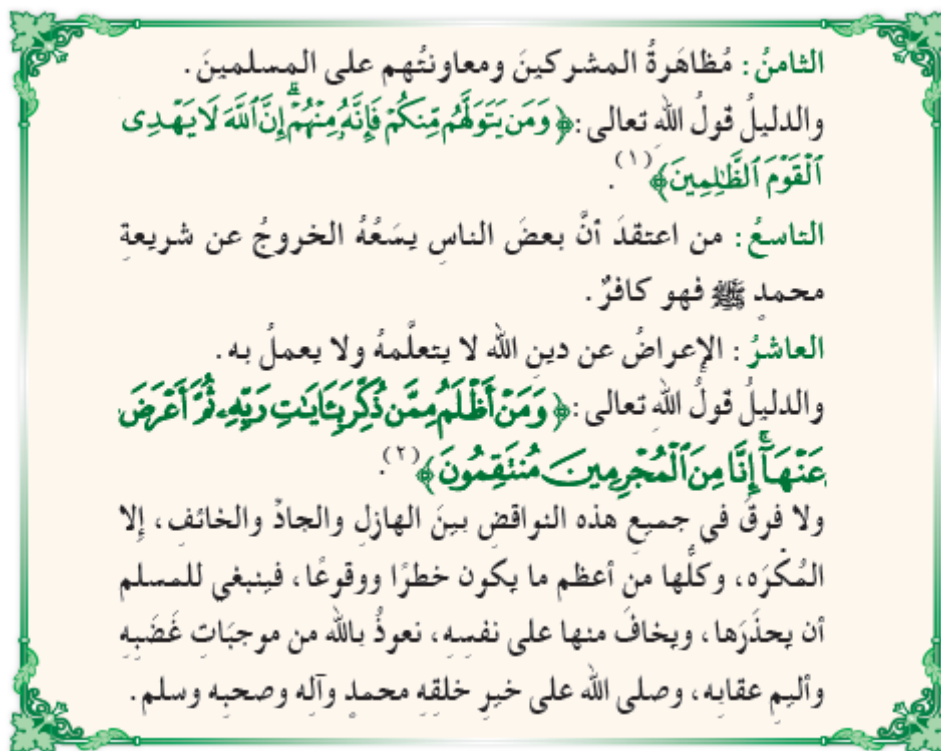 الثامنُ: مُظاهَرةُ المشركينَ ومعاونتُهم على المسلمينَ.
والدليلُ قولُ اللهِ تعالى: ﴿وَمَن يَتَوَلَّهُم مِّنكُمْ فَإِنَّهُۥ مِنْهُمْ ۗ إِنَّ ٱللَّهَ لَا يَهْدِى
ٱلْقَوْمَ ٱلظَّـٰلِمِينَ﴾(١).
التاسعُ: من اعتقدَ أنَّ بعضَ الناسِ يسَعُهُ الخروجُ عن شريعةِ
محمدٍ ﷺ فهو كافرٌ.
العاشرُ: الإعراضُ عن دينِ الله لا يتعلَّمهُ ولا يعملُ به.
والدليلُ قولُ اللهِ تعالى: ﴿وَمَنْ أَظْلَمُ مِمَّن ذُكِّرَ بِـَٔايَـٰتِ رَبِّهِۦ ثُمَّ أَعْرَضَ
عَنْهَآ ۚ إِنَّا مِنَ ٱلْمُجْرِمِينَ مُنتَقِمُونَ﴾(٢).
ولا فرقَ في جميعِ هذه النواقضِ بينَ الهازلِ والجادِّ والخائفِ، إلا
المُكْرَه، وكلُّها من أعظم ما يكون خطرًا ووقوعًا، فينبغي للمسلم
أن يحذَرَها، ويخافَ منها على نفسِهِ، نعوذُ بالله من موجبَاتِ غَضَبِهِ
وأليمِ عقابِه، وصلى الله على خيرِ خلقِهِ محمدٍ وآلِه وصحبِه وسلم.